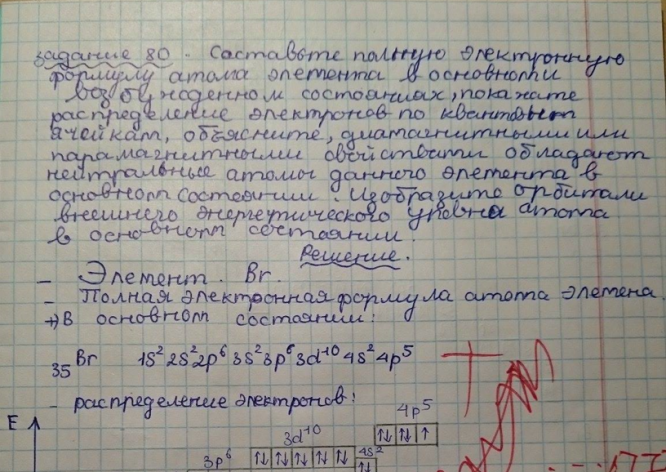 задание 80. Составьте полную электронную
формулу атома элемента в основном и
возбужденном состояниях, покажите
распределение электронов по квантовым
ячейкам, объясните, диамагнитными или
парамагнитными свойствами обладают
нейтральные атомы данного элемента в
основном состоянии. Изобразите орбитали
внешнего энергетического уровня атома
в основном состоянии.
Решение.
- Элемент. Br.
- Полная электронная формула атома элемена.
→ В основном состоянии:
₃₅Br 1s² 2s² 2p⁶ 3s² 3p⁶ 3d¹⁰ 4s² 4p⁵
- распределение электронов:
E 4p⁵
3d¹⁰
3p⁶ 4s²